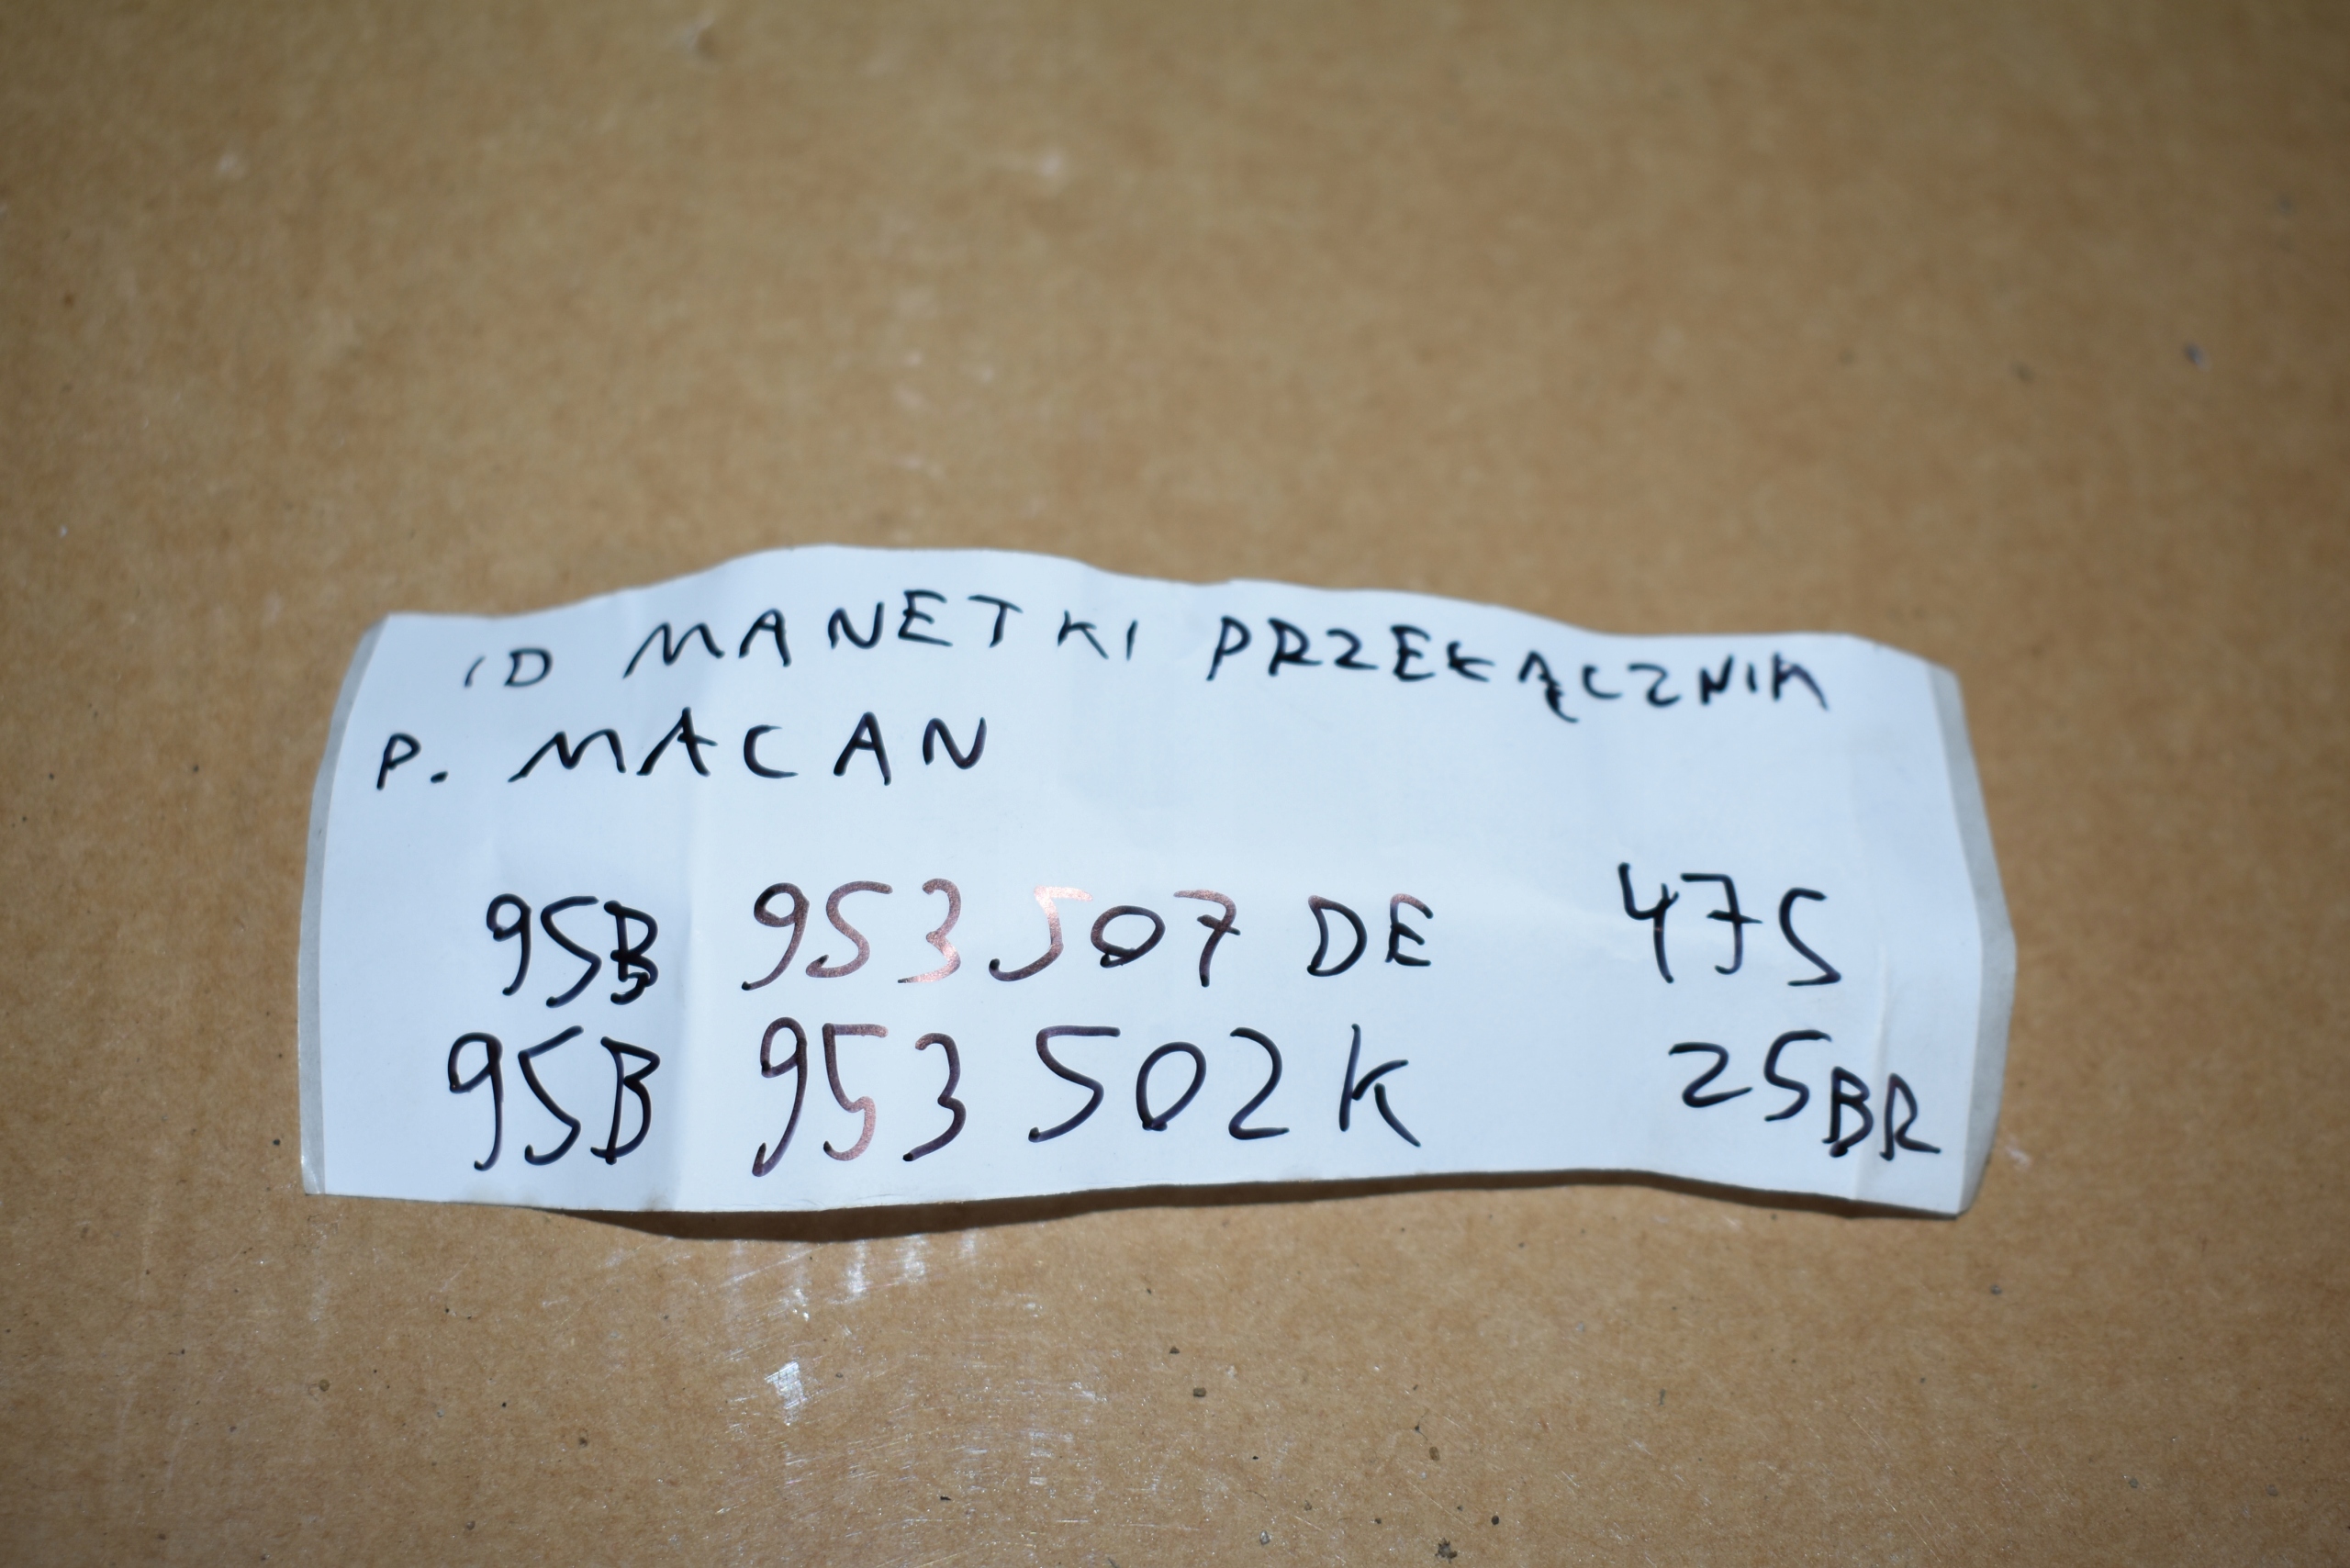 ID MANETKI PRZEŁĄCZNIK
P. MACAN
95B 953 507 DE 475
95B 953 502 K 25BR